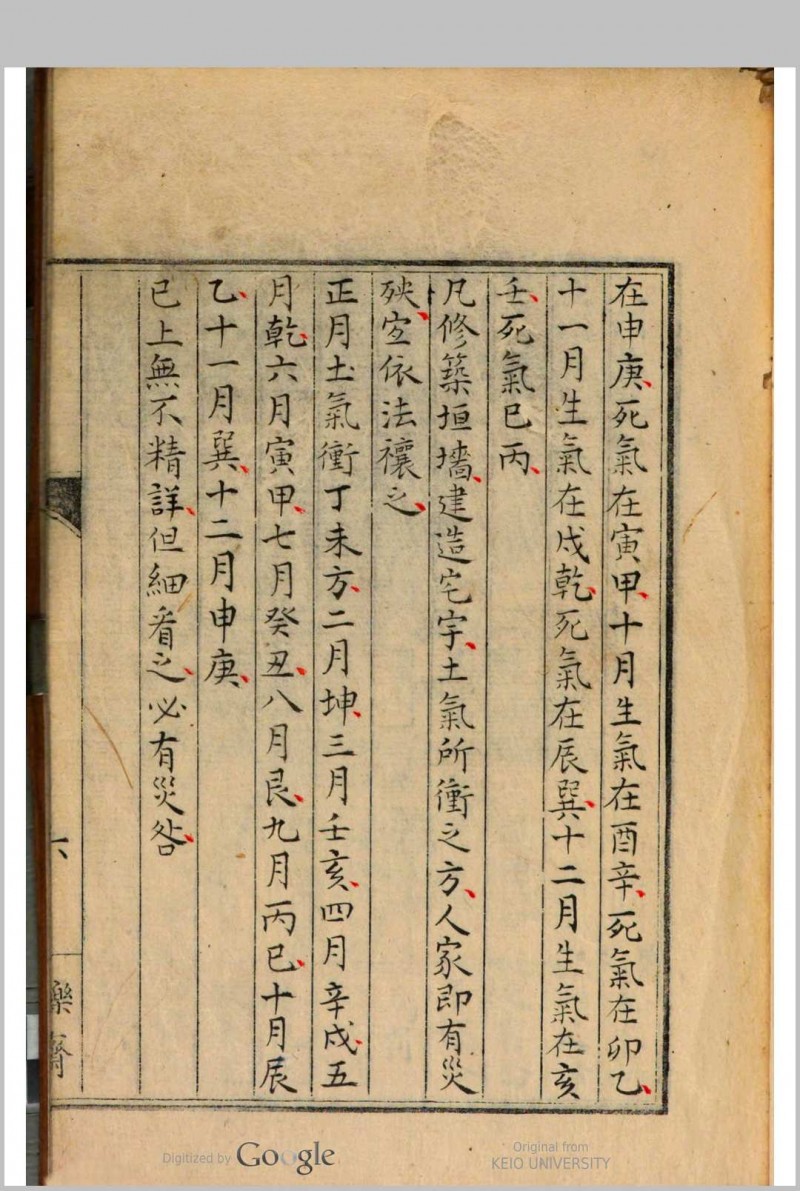 在申庚死氣在寅甲十月生氣在酉辛死氣在卯乙
十一月生氣在戌乾死氣在辰巽十二月生氣在亥
壬死氣巳丙
凡修築垣墻建造宅宇土氣所衝之方人家即有災
殃宐依法禳之
正月土氣衝丁未方二月坤三月壬亥四月辛戌五
月乾六月寅甲七月癸丑八月艮九月丙巳十月辰
乙十一月巽十二月申庚
已上無不精詳但細看之必有災咎
六
樂齋
Digitized by Google
Original from
KEIO UNIVERSITY